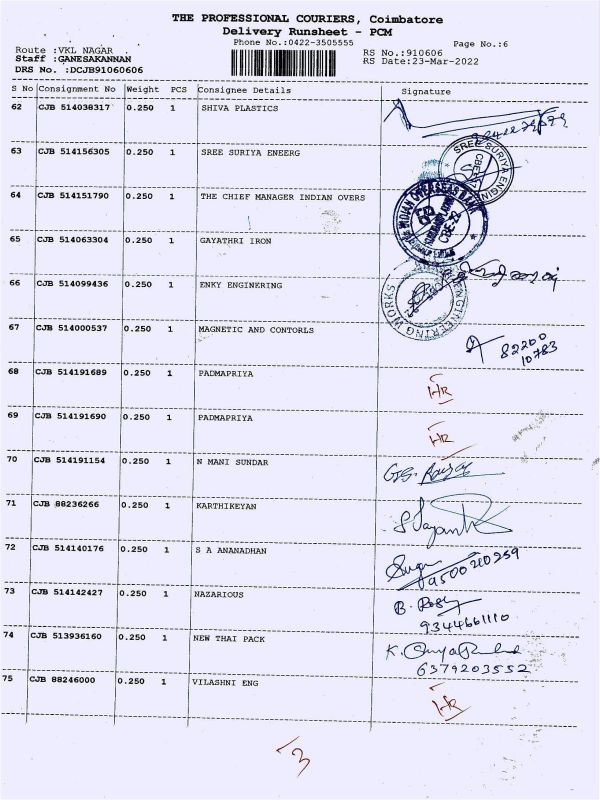 THE PROFESSIONAL COURIERS, Coimbatore
Delivery Runsheet - PCM
Phone No.:0422-3505555
Page No.:6
Route :VKL NAGAR
Staff :GANESAKANNAN
DRS No. :DCJB91060606
RS No.:910606
RS Date:23-Mar-2022
S No Consignment No Weight PCS Consignee Details Signature
62 CJB 514038317 0.250 1 SHIVA PLASTICS
63 CJB 514156305 0.250 1 SREE SURIYA ENEERG
SREE SURIYA ENGIN
64 CJB 514151790 0.250 1 THE CHIEF MANAGER INDIAN OVERS
INDIAN OVERSEAS BANK
65 CJB 514063304 0.250 1 GAYATHRI IRON
66 CJB 514099436 0.250 1 ENKY ENGINERING
ENGINEERING WORKS
67 CJB 514000537 0.250 1 MAGNETIC AND CONTORLS
82200
10783
68 CJB 514191689 0.250 1 PADMAPRIYA HR
69 CJB 514191690 0.250 1 PADMAPRIYA HR
70 CJB 514191154 0.250 1 N MANI SUNDAR
71 CJB 88236266 0.250 1 KARTHIKEYAN
72 CJB 514140176 0.250 1 S A ANANADHAN
9500210259
73 CJB 514142427 0.250 1 NAZARIOUS
9344661110
74 CJB 513936160 0.250 1 NEW THAI PACK
6379203552
75 CJB 88246000 0.250 1 VILASHNI ENG HR
13